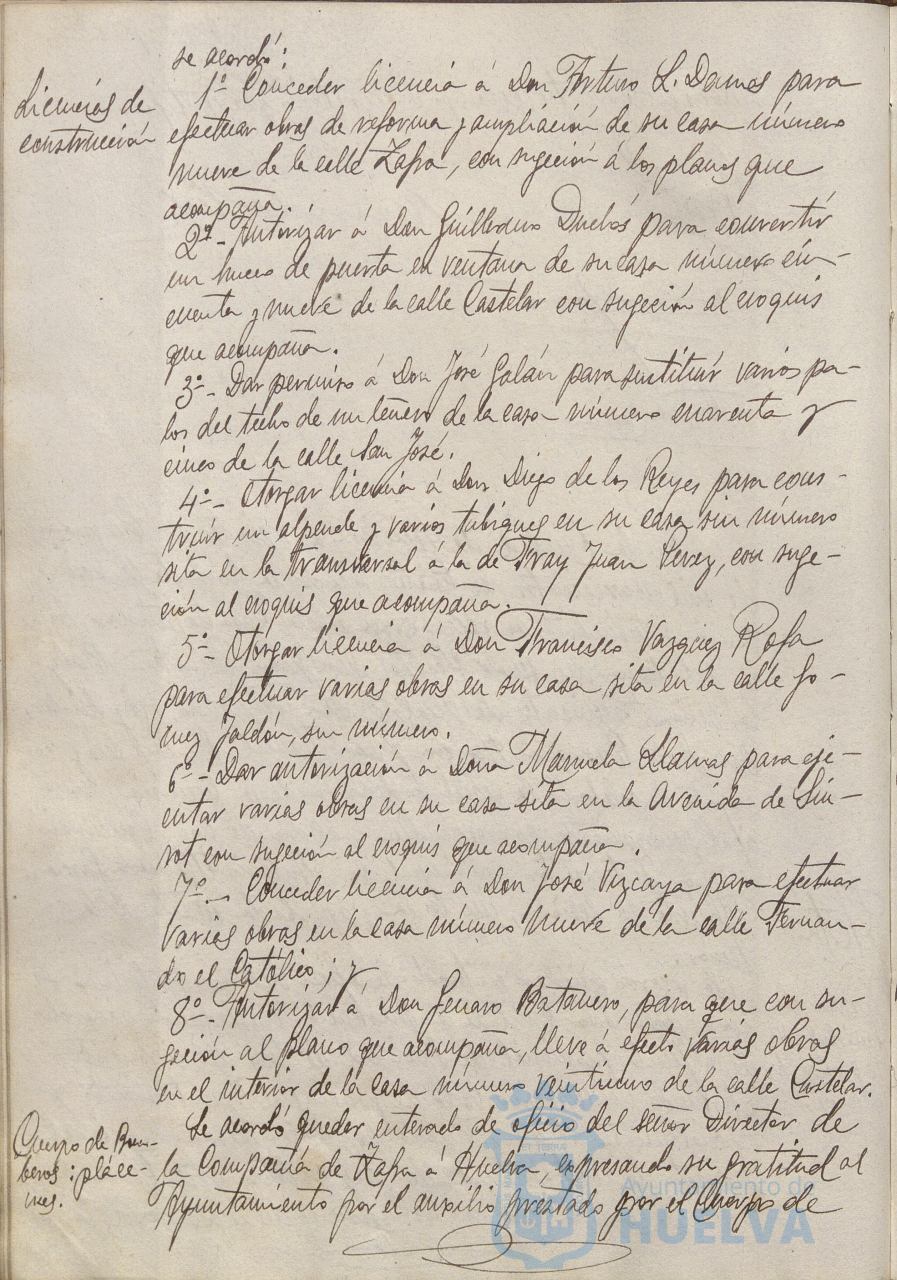 se acordó:
Licencias de
construcción
1º Conceder licencia á Don Arturo L. Damas para
efectuar obras de reforma y ampliación de su casa número
nueve de la calle Zafra, con sugeción á los planos que
acompaña.
2º - Autorizar á Don Guillermo Duclós para convertir
un hueco de puerta en ventana de su casa número cin-
cuenta y nueve de la calle Castelar con sugeción al croquis
que acompaña.
3º - Dar permiso á Don José Galán para sustituir varios pa-
los del techo de un leñero de la casa número cuarenta y
cinco de la calle San José.
4º - Otorgar licencia á Don Diego de los Reyes para cons-
truir un alpende y varios tabiques en su casa sin número
sita en la transversal á la de Fray Juan Perez, con suge-
ción al croquis que acompaña.
5º - Otorgar licencia á Don Francisco Vazquez Rofa
para efectuar varias obras en su casa sita en la calle Go-
mez Jaldón, sin número.
6º - Dar autorización á Doña Manuela Llamas para eje-
cutar varias obras en su casa sita en la Avenida de Sun-
rot con sugeción al croquis que acompaña.
7º - Conceder licencia á Don José Vizcaya para efectuar
varias obras en la casa número nueve de la calle Fernan-
do el Católico; y
8º - Autorizar á Don Genaro Batanero, para que con su-
geción al plano que acompaña, lleve á efecto varias obras
en el interior de la casa número veintiuno de la calle Castelar.
Cuerpo de Bom-
beros: pláce-
mes.
Se acordó quedar enterado de oficio del señor Director de
la Compañía de Zafra á Huelva, expresando su gratitud al
Ayuntamiento por el auxilio prestado por el Cuerpo de
Ayuntamiento de
HUELVA